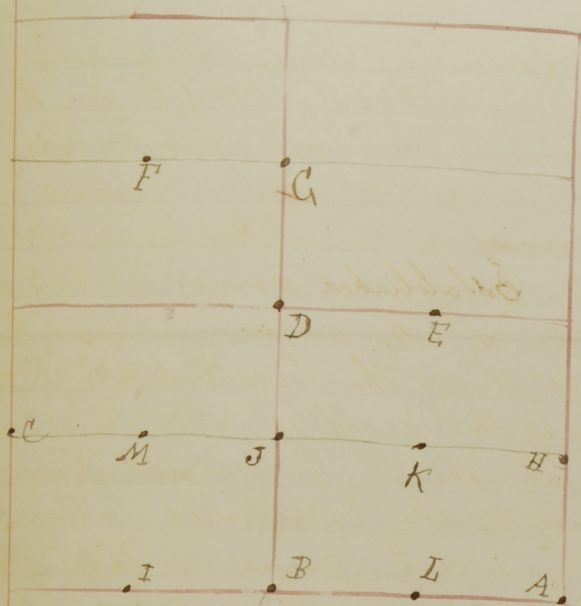 F G
D E
C M J K H
I B L A